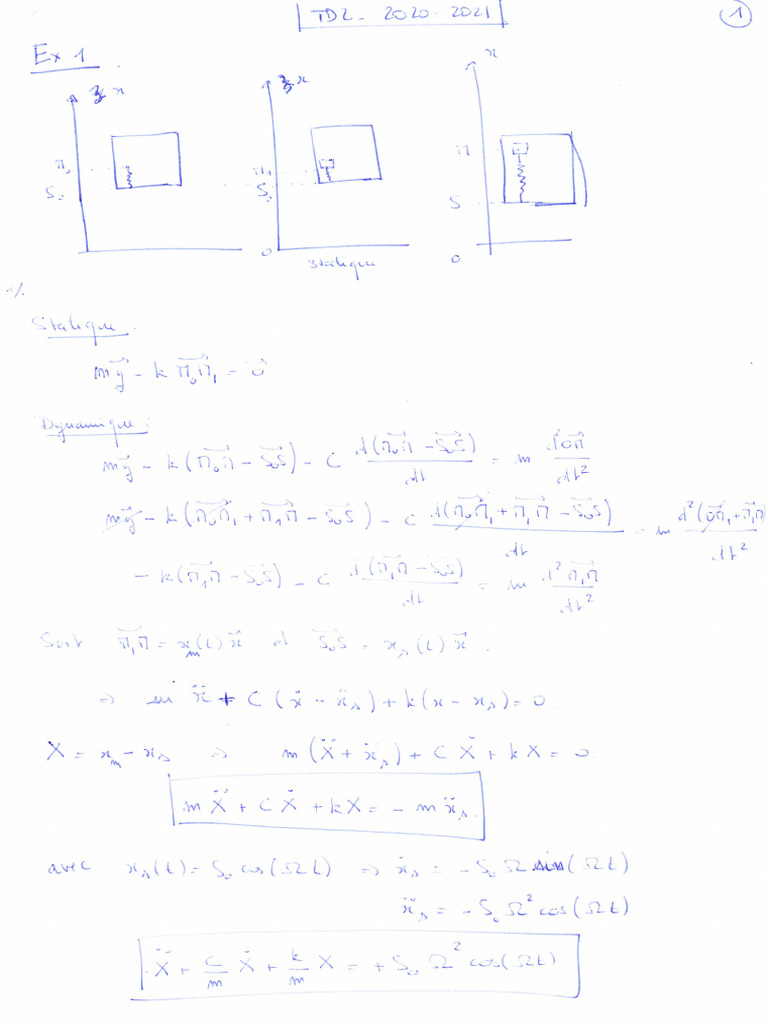 TD2 - 2020-2021
1
Ex 1
z x
z x
x
M₀
M₁
M
S₀
S₀
S
0
0
statique
1/.
Statique.
m\vec{g} - k \vec{M₀M₁} = \vec{0}
Dynamique:
m\vec{g} - k(\vec{M₀M} - \vec{S₀S}) - C d(\vec{M₀M} - \vec{S₀S})/dt = m d²\vec{OM}/dt²
m\vec{g} - k(\vec{M₀M₁} + \vec{M₁M} - \vec{S₀S}) - C d(\vec{M₀M₁} + \vec{M₁M} - \vec{S₀S})/dt = m d²(\vec{OM₁} + \vec{M₁M})/dt²
- k(\vec{M₁M} - \vec{S₀S}) - C d(\vec{M₁M} - \vec{S₀S})/dt = m d²\vec{M₁M}/dt²
Soit \vec{M₁M} = x_m(t) \vec{x} et \vec{S₀S} = x_s(t) \vec{x}.
⇒ m ẍ + C(ẋ - ẋ_s) + k(x - x_s) = 0.
X = x_m - x_s ⇒ m(Ẍ + ẍ_s) + C Ẋ + k X = 0
m Ẍ + C Ẋ + k X = - m ẍ_s.
avec x_s(t) = S₀ cos(Ωt) ⇒ ẋ_s = - S₀ Ω sin(Ωt)
ẍ_s = - S₀ Ω² cos(Ωt)
Ẍ + C/m Ẋ + k/m X = + S₀ Ω² cos(Ωt)